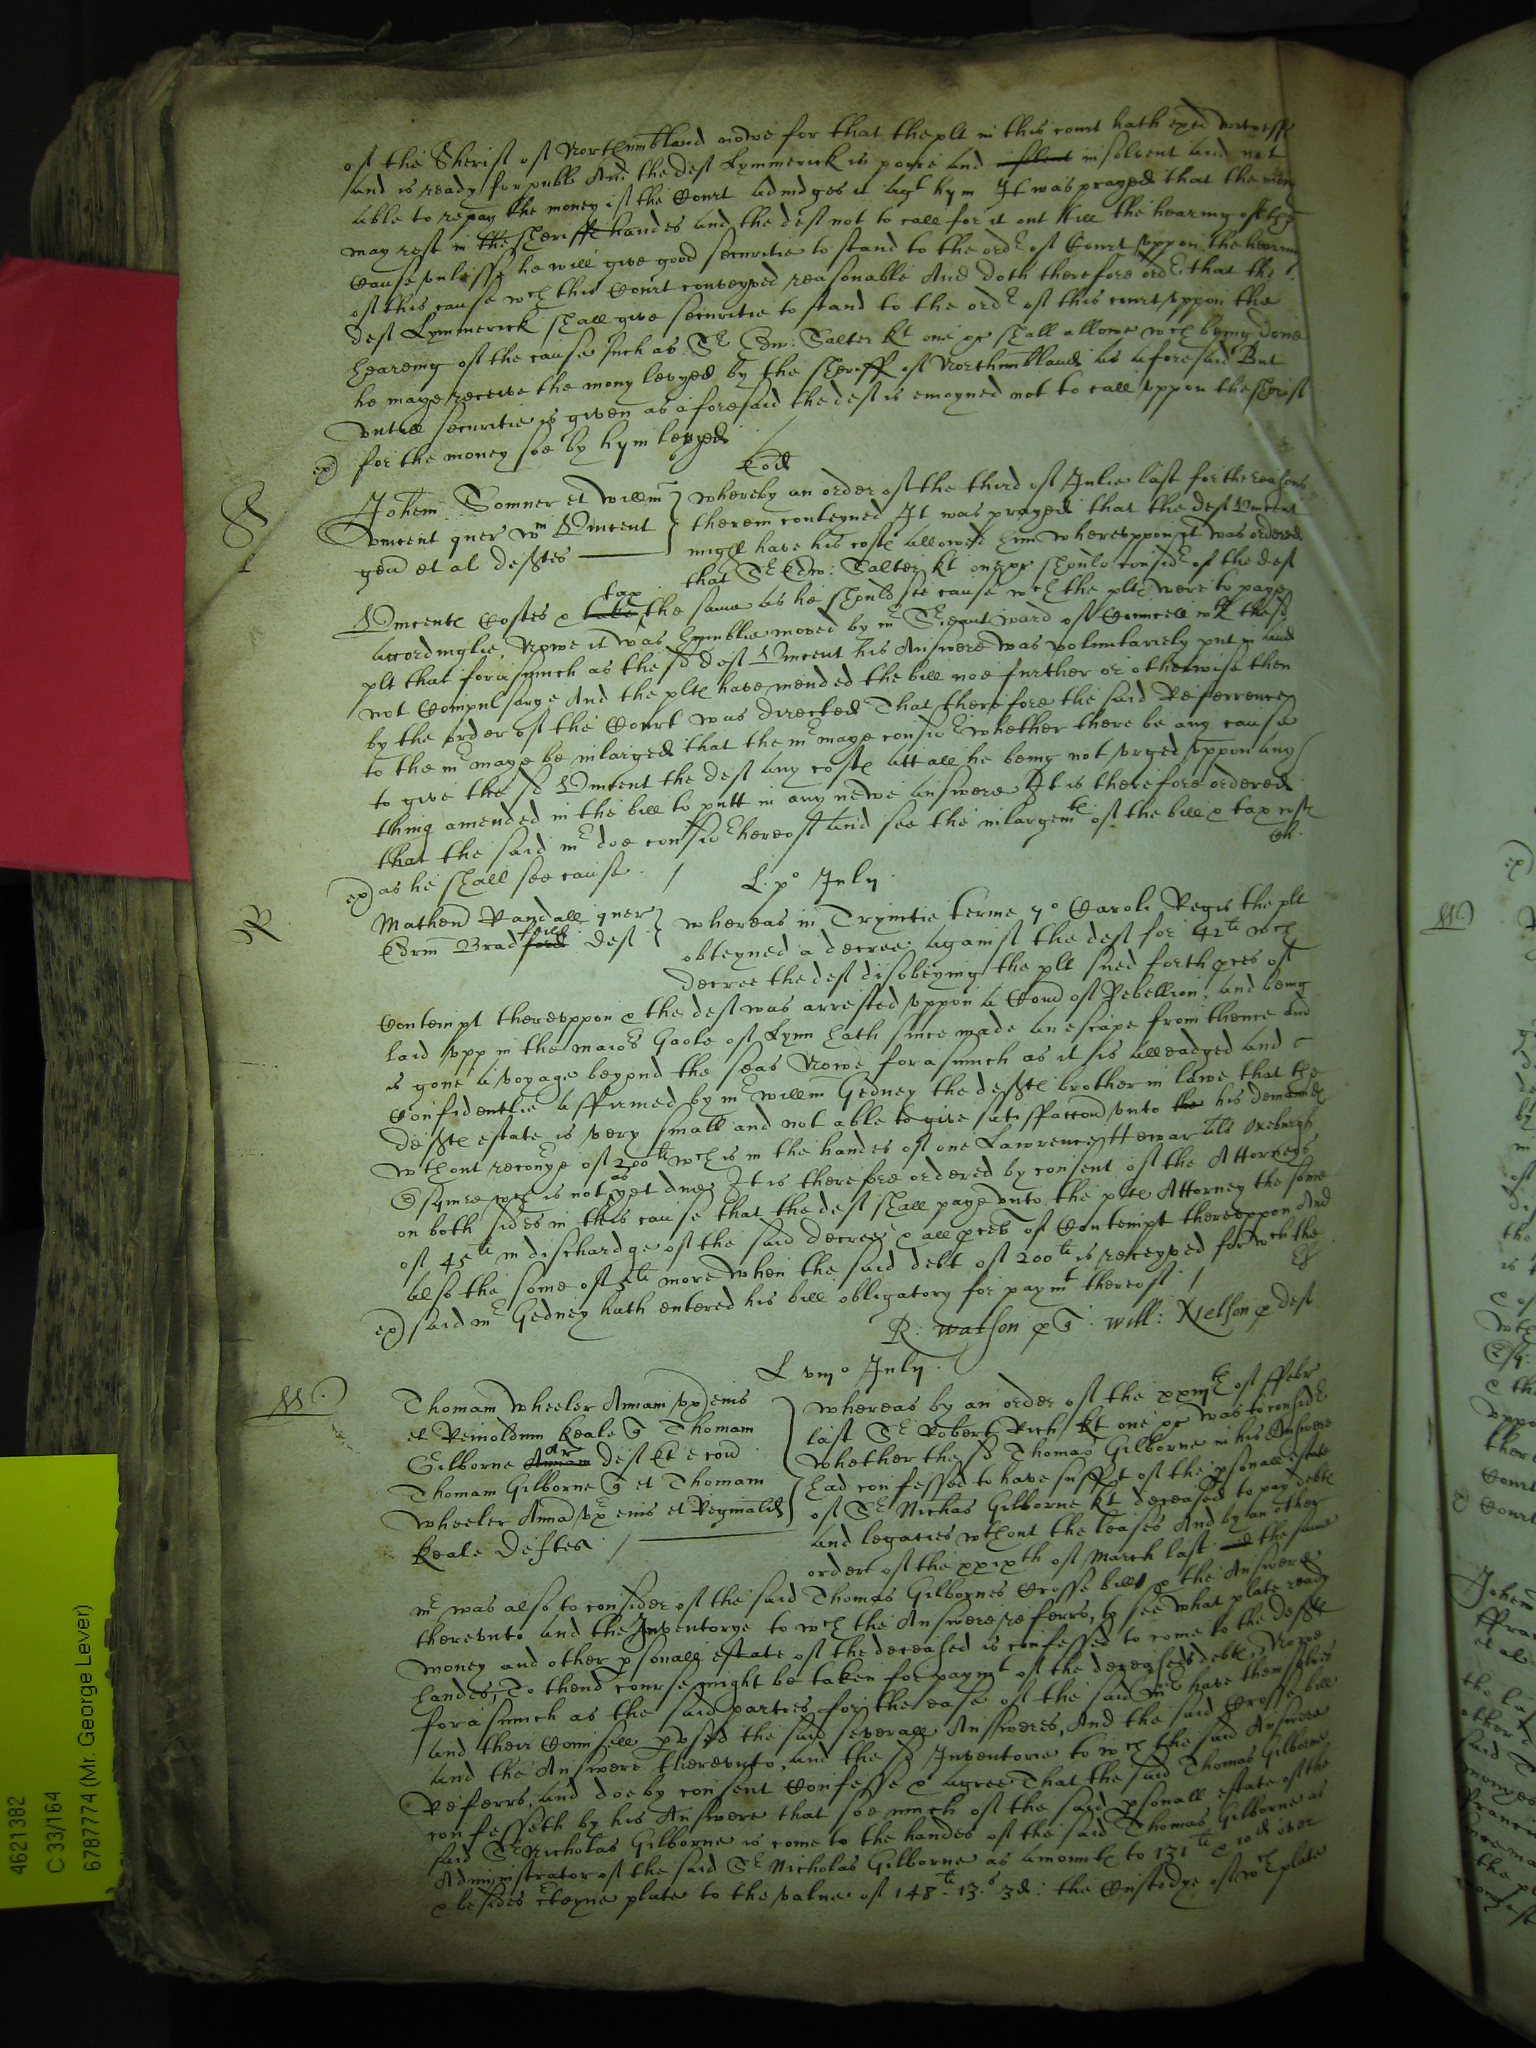 of the Sheriff of Northumbland nowe for that the plt in this court hath exed wittnesses
and is ready for publ And the deft Lymmerick is poore and insolvent and not
able to repay the money if the Court adiudges it agt hym It was prayed that the mony
may rest in the Sheriffe handes and the deft not to call for it out till the hearing of the
Cause unlesse he will give good securitie to stand to the ordr of Court uppon the hearing
of this cause wch this Court conceyved reasonable And doth therefore ordr that the
deft Lymmerick shall give securitie to stand to the ordr of this court uppon the
heareing of the cause such as Sr Edw: Salter kt one &c shall allowe wch being done
he maye receive the mony levyed by the sheriff of Northumbland as aforesaid But
untill securitie is given as aforesaid the deft is enioyned not to call uppon the sheriff
ex) for the money soe by hym levyed /
Eod
S
Johem Somner et Willm } whereby an order of the third of Julie last for the reasons
Vincent quer Wm Vincent } therein conteyned It was prayed that the deft Vincent
gen et al deftes } might have his costs allowed him whereuppon it was ordered
that Sr Edw: Salter kt one &c should considr of the deft
Vincente Costes & tax the same as he should see cause wch the plts were to paye
accordinglie, Nowe it was humblie moved by mr Sieaunt ward of Councell wth the sd
plt that forasmuch as the sd deft Vincent his Answere was voluntariely put in and
not Compulsarye And the plts have mended the bill noe further or otherwise then
by the order of the Court was directed That therefore the said Referrence
to the mr maye be inlarged that the mr maye considr whether there be any cause
to give the sd Vincent the deft any costs att all he being not urged uppon any
thing amended in the bill to putt in any newe answere It is therefore ordered
that the said mr doe considr hereof and see the inlargemts of the bill & tax costs
ex) as he shall see cause /
L. po July
R
Matheu Randall quer } whereas in Trynitie terme 7o Caroli Regis the plt
Edrm Brad deft } obteyned a decree against the deft for 42li wch
decree the deft disobeying the plt sued forth pces of
Contempt thereuppon & the deft was arrested uppon a Comd of Rebellion, and being
laid upp in the maiors Gaole of Lynn hath since made an escape from thence and
is gone a voyage beyond the seas Nowe forasmuch as it is alleadged and
Confidentlie affirmed by mr Willm Gedney the defts brother in lawe that the
defts estate is very small and not able to give satisfaccon unto his demands
wthout recovrye of 200li wch is in the handes of one Lawrence
Esquire wch is not as yet due It is therefore ordered by consent of the Attorneys
on both sides in this cause that the deft shall paye unto the plts Attorney the some
of 45li in dischardge of the said decree & all pces of Contempt thereuppon And
also the some of 5li more when the said debt of 200li is receyved for wch the
ex) said mr Gedney hath entered his bill obligatory for paymt thereof /
R: Watson p Q. Will: Nelson p deft
L viijo July
W
Thomam Wheeler Annam ux eius } whereas by an order of the xxiijth of ffebr
et Reinoldum Keale Q Thomam } last Sr Robert Rich kt one &c was to considr
Gilborne Ar deft Et e con } whether the sd Thomas Gilborne in his Answere
Thomam Gilborne Q et Thomam } had confessed to have sufft of the psonall estate
Wheeler Anna ux eius et Reginald } of Sr Nichas Gilborne kt deceased to pay debts
Keale deftes / and legacies wthout the leases And by an other
order of the xxixth of March last the same
mr was also to consider of the said Thomas Gilbornes Crosse bill & the Answere
thereunto and the Inventorye to wch the Answere referrs, to see what plate ready
money and other psonall estate of the deceased is confessed to come to the defts
handes, To thend course might be taken for paymt of the deceaseds debts, Nowe
forasmuch as the said parties for the ease of the said mr have themselves
and their Councell pused the said severall Answeres, And the said Crosse bill
and the Answere thereunto, and the sd Inventorie to wch the said Answere
Referrs, and doe by consent Confesse & agree That the said Thomas Gilborne
confesseth by his Answere that soe much of the said psonall estate of the
said Sr Nicholas Gilborne is come to the handes of the said Thomas Gilborne as
Administrator of the said Sr Nicholas Gilborne as amounts to 131li & 10d over
& besides cteyne plate to the value of 148li. 13s. 3d: the Custodye of wch plate
4621382
C 33/164
6787774 (Mr. George Lever)